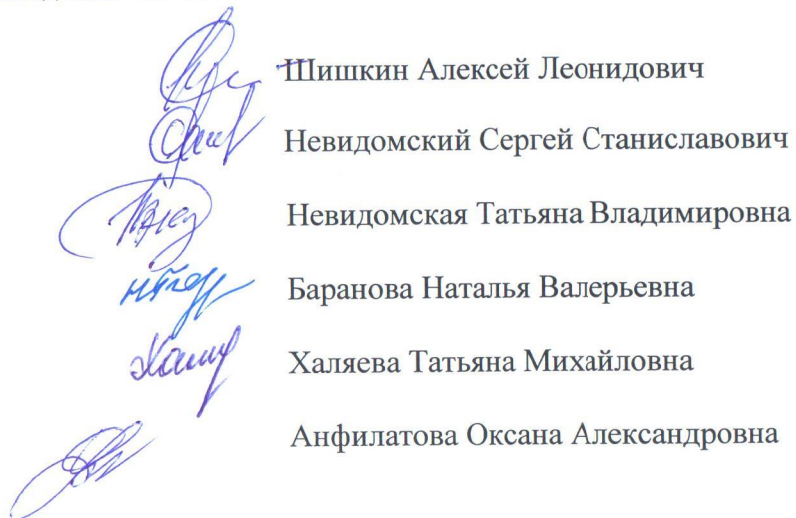 Шишкин Алексей Леонидович
Невидомский Сергей Станиславович
Невидомская Татьяна Владимировна
Баранова Наталья Валерьевна
Халяева Татьяна Михайловна
Анфилатова Оксана Александровна